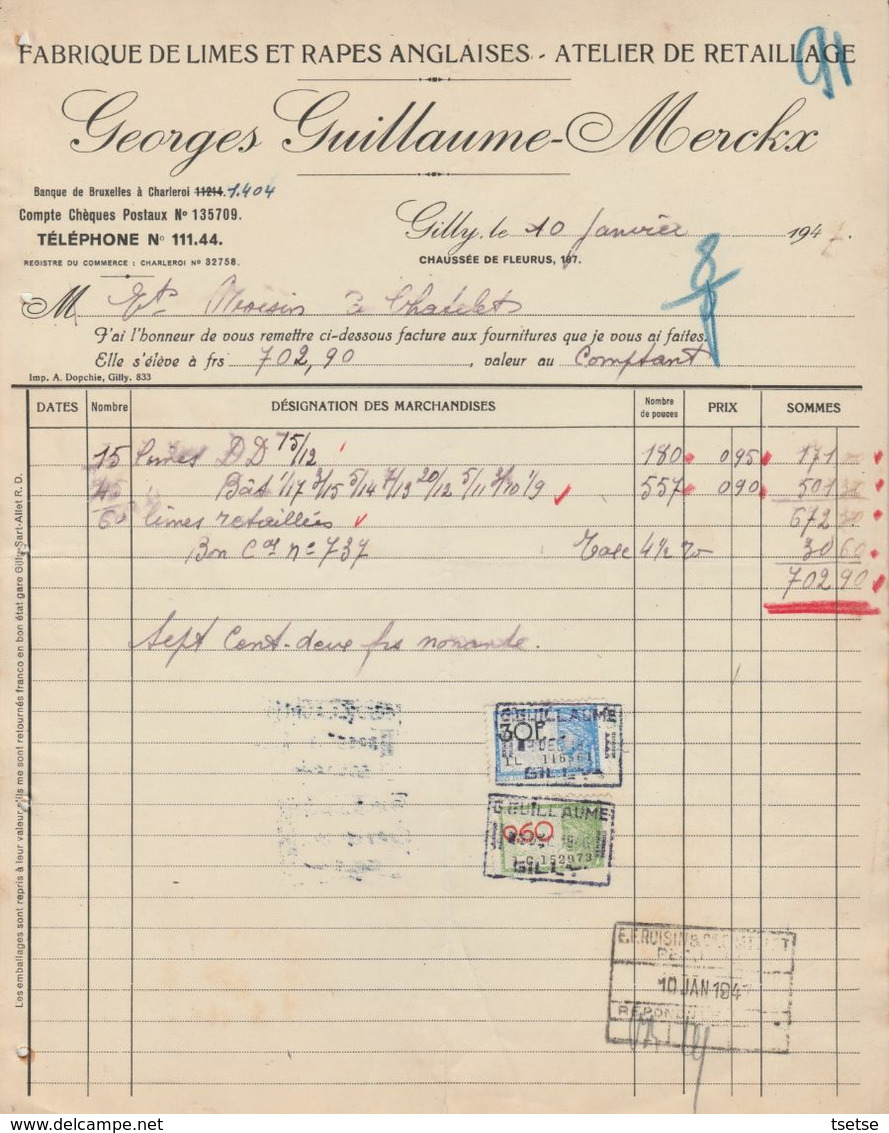 91
FABRIQUE DE LIMES ET RAPES ANGLAISES - ATELIER DE RETAILLAGE
Georges Guillaume-Merckx
Banque de Bruxelles à Charleroi 11214. 1.404
Compte Chèques Postaux No 135709.
TÉLÉPHONE No 111.44.
REGISTRE DU COMMERCE : CHARLEROI No 32758.
Gilly, le 10 Janvier 1947.
CHAUSSÉE DE FLEURUS, 187.
M Ets Chatelet
J'ai l'honneur de vous remettre ci-dessous facture aux fournitures que je vous ai faites.
Elle s'élève à frs 702,90, valeur au Comptant
Imp. A. Dopchie, Gilly. 833
DATES Nombre DÉSIGNATION DES MARCHANDISES Nombre de pouces PRIX SOMMES
15 limes DD 15/12 180 095 171
45 Bât 1/17 3/15 5/14 7/13 20/12 5/11 3/10 1/9 557 090 501 30
60 limes retaillées 672 30
Bon Cde no 737 Taxe 4 1/2 % 30 60
702 90
Sept Cent-deux frs nonante.
Les emballages sont repris à leur valeur s'ils me sont retournés franco en bon état gare Gilly-Sart-Allet R. D.
G GUILLAUME
30F.
GILLY
G GUILLAUME
060
1.G.152973
GILLY
10 JAN 1947
tsetse